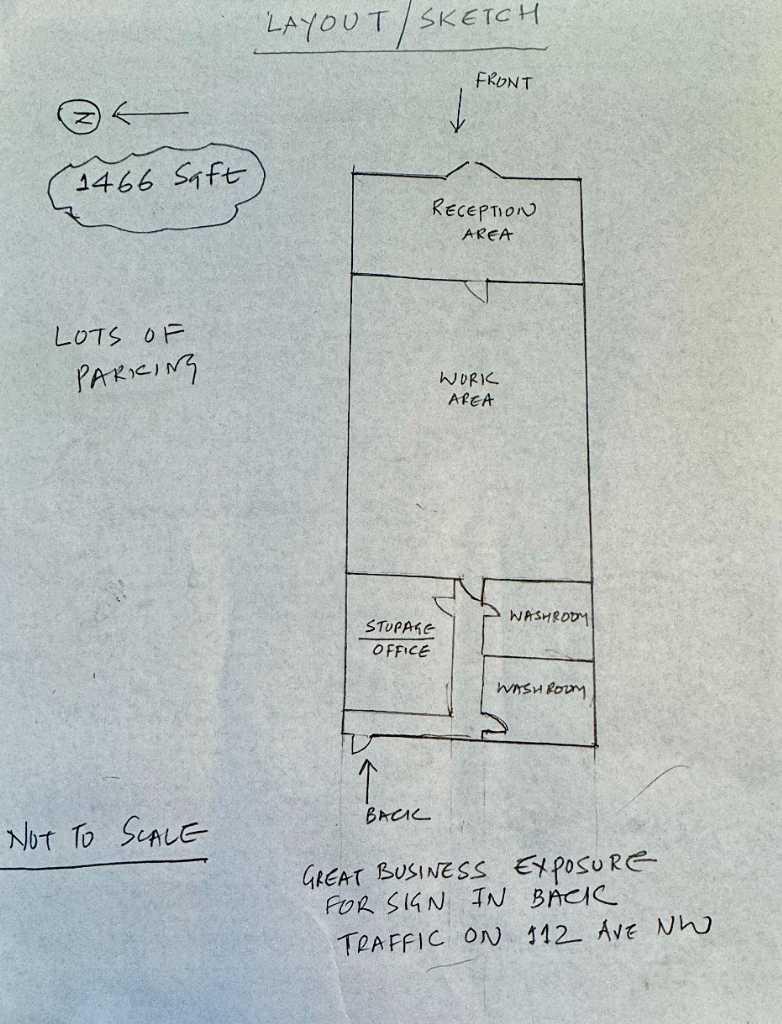 LAYOUT/SKETCH
FRONT
N
1466 Sqft
RECEPTION
AREA
LOTS OF
PARKING
WORK
AREA
WASHROOM
STORAGE
OFFICE
WASHROOM
BACK
NOT TO SCALE
GREAT BUSINESS EXPOSURE
FOR SIGN IN BACK
TRAFFIC ON 112 AVE NW